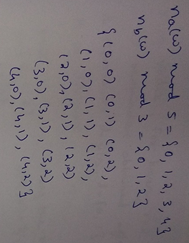 na(w) mod 5 = {0, 1, 2, 3, 4}
nb(w) mod 3 = {0, 1, 2}
{(0,0) (0,1) (0,2),
(1,0), (1,1), (1,2),
(2,0), (2,1), (2,2)
(3,0), (3,1), (3,2)
(4,0), (4,1), (4,2)}